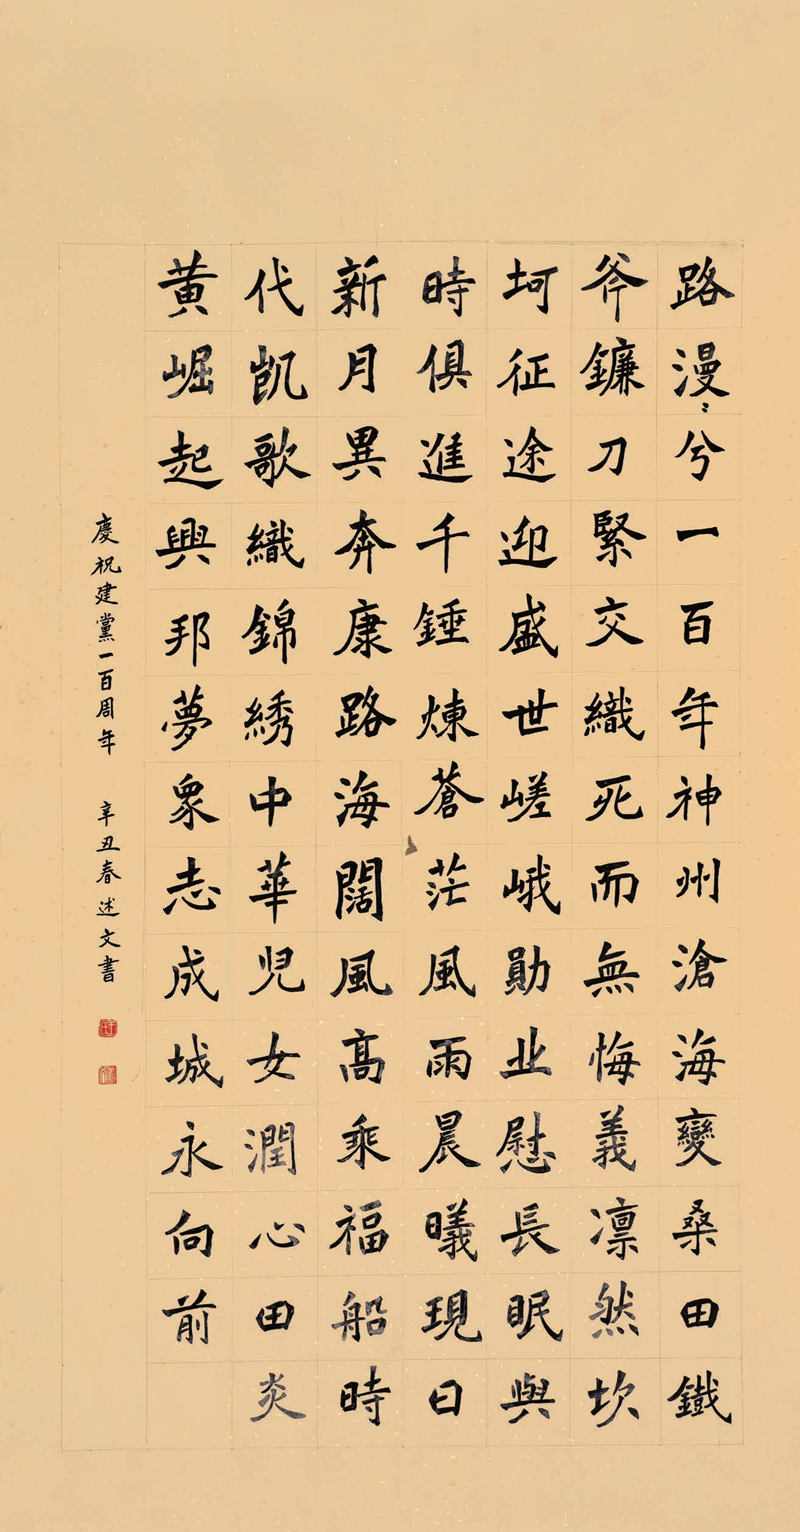 路漫〻兮一百年神州滄海變桑田鐵
斧鐮刀緊交織死而無悔義凛然坎
坷征途迎盛世嵯峨勛业慰長眠與
時俱進千錘煉蒼茫風雨晨曦現日
新月異奔康路海闊風高乘福船時
代凱歌織錦綉中華児女潤心田炎
黄崛起興邦夢衆志成城永向前
慶祝建黨一百周年 辛丑春述文書